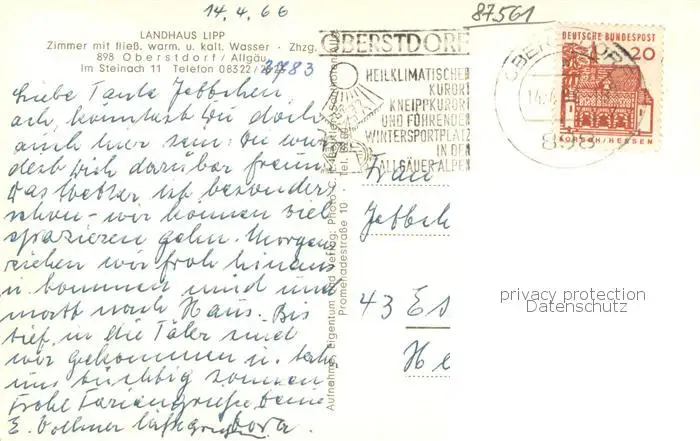 14.4.66
87561
LANDHAUS LIPP
Zimmer mit fließ. warm. u. kalt. Wasser · Zhzg.
898 Oberstdorf/Allgäu
Im Steinach 11 Telefon 08322/2783
OBERSTDORF
HEILKLIMATISCHER
KURORT
KNEIPPKURORT
UND FÜHRENDER
WINTERSPORTPLATZ
IN DEN
ALLGÄUER ALPEN
DEUTSCHE BUNDESPOST
20
LORSCH/HESSEN
898
Liebe Tante Jettchen,
ach, könntest Du doch
auch hier sein! Du wür
dest Dich darüber freuen
Das Wetter ist besonders
schön - wir können viel
spazieren gehn. Morgens
ziehen wir froh hinaus
u. kommen müd und
nach Haus. Bis
tief in die Täler sind
wir gekommen u.
uns tüchtig sonnen
Frohe Feriengrüße Deine
E. Vollmer Dora
Aufnahme, Eigentum und Verlag: Photo
Promenadestraße 10 · Tel.
Frau
Jettch
43 Es
He
privacy protection
Datenschutz